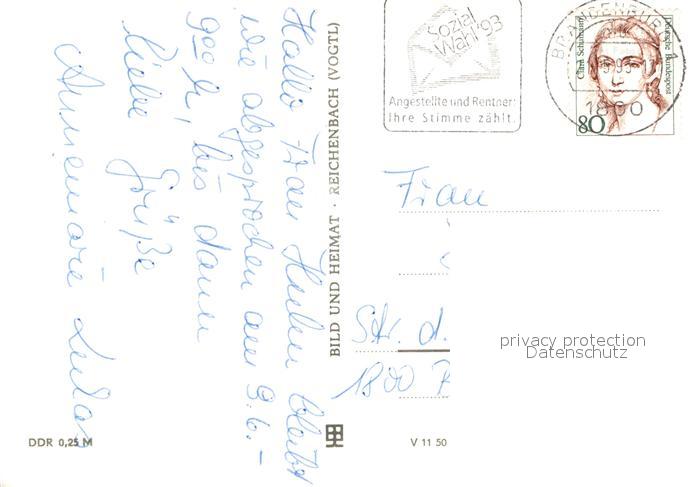 Hallo Frau Huhn bleibt
wie abgesprochen am 9.6.-
9oo h! bis dann
liebe Grüße
Annemarie
BILD UND HEIMAT · REICHENBACH (VOGTL)
DDR 0,25 M
V 11 50
Sozial
Wahl '93
Angestellte und Rentner:
Ihre Stimme zählt.
BRANDENBURG 1
1800
Clara Schumann
Deutsche Bundespost
80
Frau
Str. d.
1800
privacy protection
Datenschutz